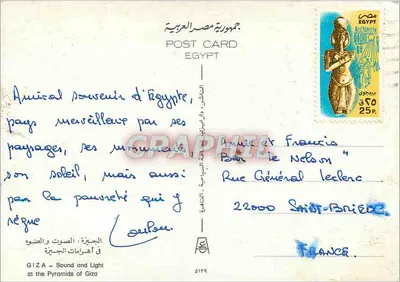 جمهورية مصر العربية
POST CARD
EGYPT
مصر
EGYPT
بريد جوى
٢٥ق
25P.
Amical souvenir d'Egypte,
pays merveilleux par ses
paysages, ses monuments,
son soleil, mais aussi
par la pauvreté qui y
règne
Loulou
Annie et Francis
Bar "le Nelson"
Rue Général Leclerc
22000 SAINT-BRIEUC
FRANCE
الجيزة - الصوت والضوء
فى أهرامات الجيزة
GIZA - Sound and Light
at the Pyramids of Giza
٥١٢٩
GRAPHIL